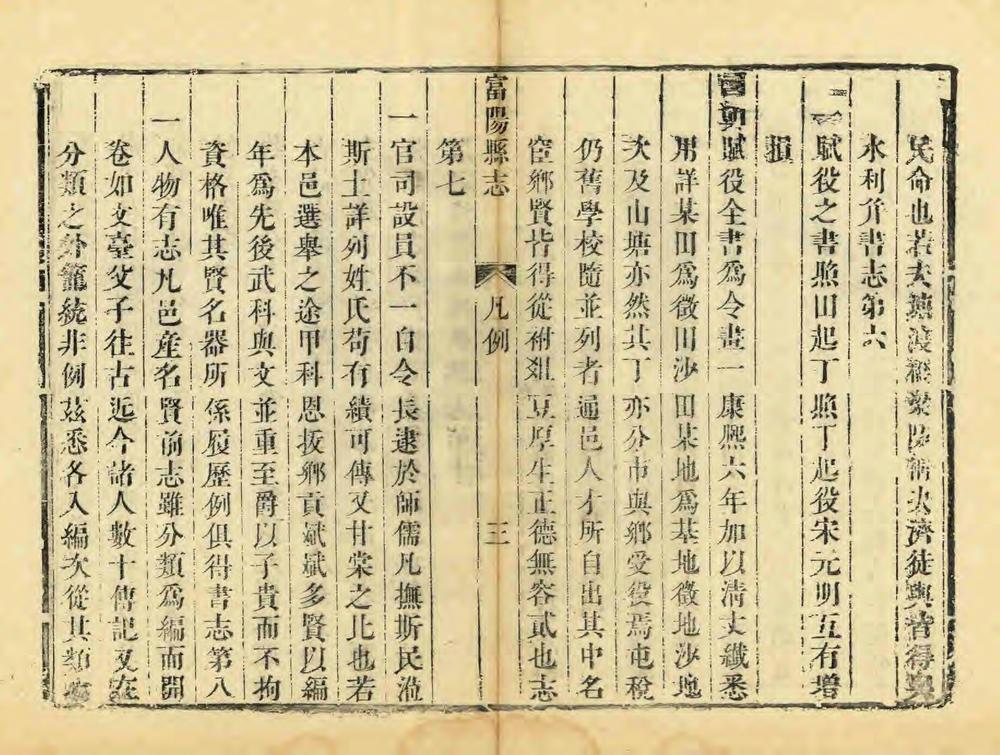 民命也若夫塘渡橋梁隄備水濟徒與皆得與
水利并書志第六
一賦役之書照田起丁照丁起役宋元明互有增
損
國朝賦役全書爲令畫一康熙六年加以清丈纖悉
用詳某田爲徵田沙田某地爲基地徵地沙地
次及山塘亦然其丁亦分市與鄉受役焉屯稅
仍舊學校隨並列者通邑人才所自出其中名
宦鄉賢皆得從祔俎豆厚生正德無容貳也志
富陽縣志 凡例 三
第七
一官司設員不一自令長逮於師儒凡撫斯民涖
斯土詳列姓氏苟有績可傳又甘棠之比也若
本邑選舉之途甲科恩拔鄉貢斌斌多賢以編
年爲先後武科與文並重至爵以子貴而不拘
資格唯其賢名器所係履歷例俱得書志第八
一人物有志凡邑產名賢前志雖分類爲編而開
卷如文臺父子往古近今諸人數十傳記又在
分類之外籠統非例茲悉各入編次從其類